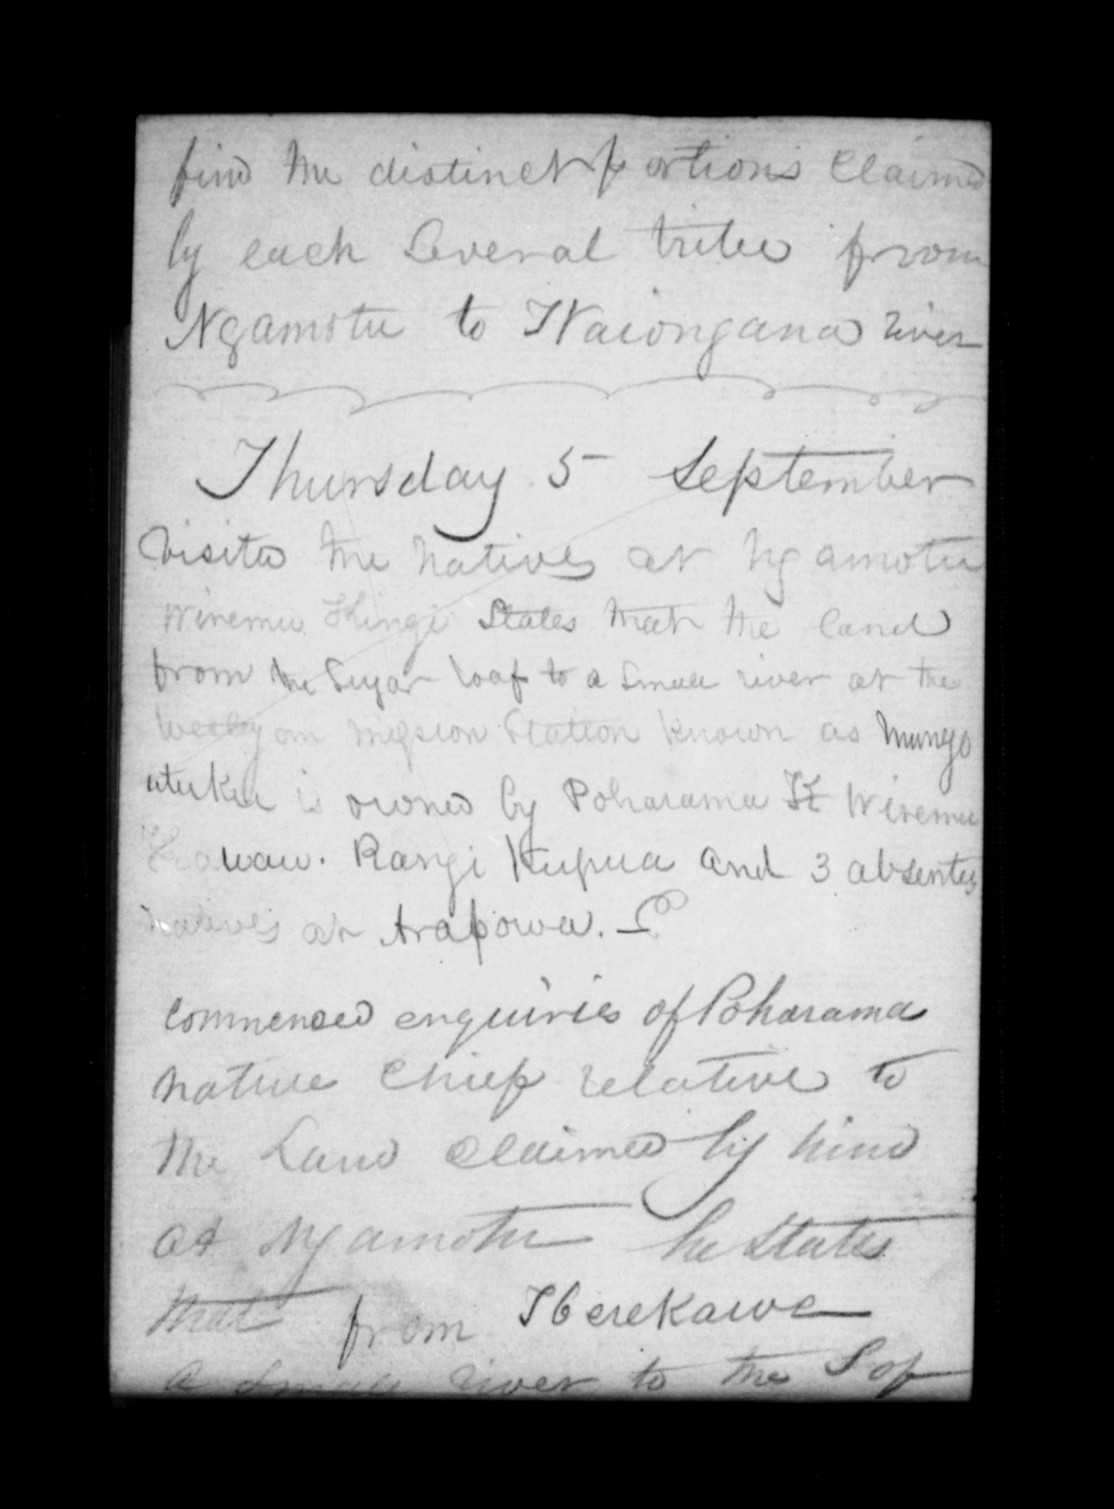 find the distinct portions Claimed
by each Several tribe from
Ngamotu to Waiongana river
Thursday 5 September
Visited the natives at Ngamotu
Wiremu Kingi States that the land
from the Sugar loaf to a Small river at the
Weslyan mission Station known as Mungo
utuku is owned by Poharama Wiremu
wau. Rangi Kupua and 3 absentee
natives at Arapowa.
Commenced enquiries of Poharama
native Chief relative to
the Land Claimed by him
at Ngamotu he States
that from Herekawe
a Small river to the S of